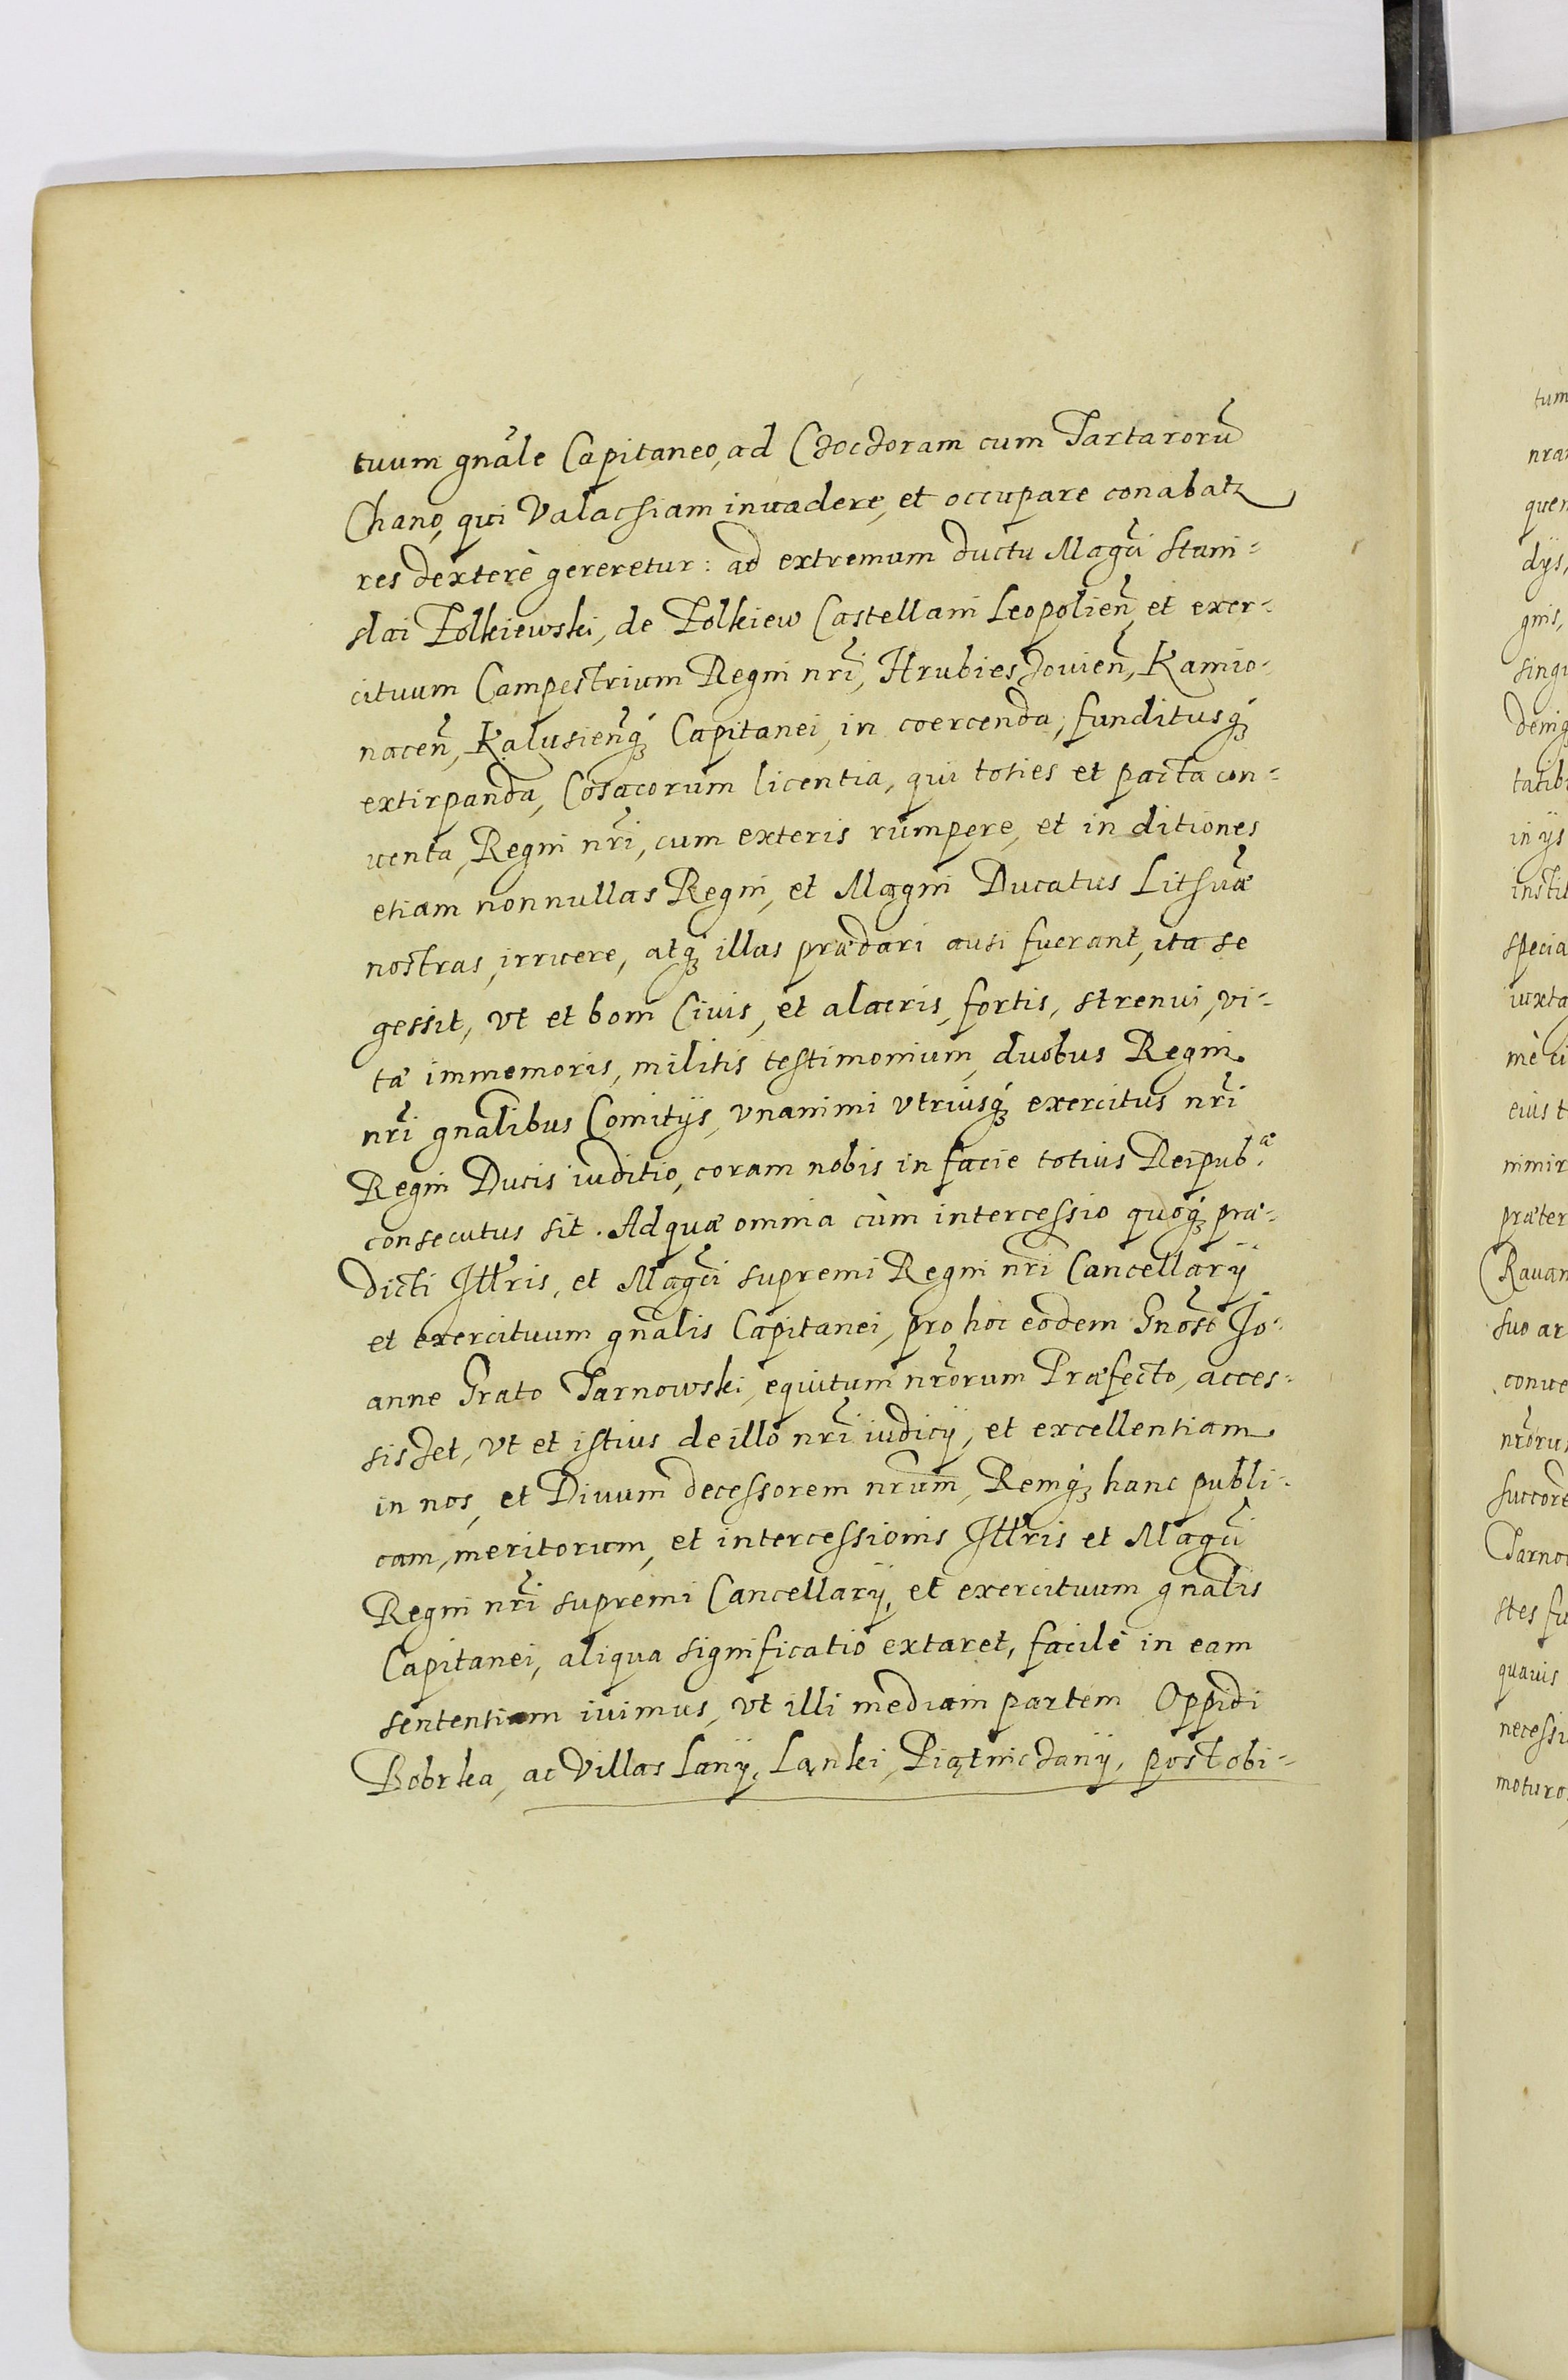 tuum gnãle Capitaneo, ad Czoczoram cum Tartarorũ
Chano, qui Valachiam inuadere, et occupare conabatꝛ
res dexterè gereretur: ad extremum ductu Magci Stani-
slai Zolkiewski, de Zolkiew Castellani Leopolien̄, et exer-
cituum Campestrium Regni nrĩ, Hrubieszouien̄, Kamio-
nacen̄, Kalusien̄qꝫ Capitanei, in coercenda, funditusqꝫ
extirpanda, Cosacorum licentia, qui toties et pacta con-
uenta, Regni nrĩ, cum exteris rumpere, et in ditiones
etiam nonnullas Regni, et Magni Ducatus Lithuæ
nostras, irruere, atqꝫ illas prædari ausi fuerant, ita se
gessit, vt et boni Ciuis, et alacris, fortis, strenui, vi-
tæ immemoris, militis testimonium, duobus Regni
nrĩ gnãlibus Comitijs, vnanimi vtriusqꝫ exercitus nrĩ
Regni Ducis iuditio, coram nobis in facie totius Reipub.æ
consecutus sit. Ad quæ omnia cùm intercessio quoqꝫ præ-
dicti Illr̃is, et Magci supremi Regni nrĩ Cancellarij
et exercituum gnãlis Capitanei, pro hoc eodem Gnõso Jo-
anne Grato Tarnowski, equitum nrõrum Præfecto, acces-
siszet, vt et istius de illo nrĩ iudicij, et excellentiam
in nos, et Diuum decessorem nrũm, Remqꝫ hanc publi-
cam, meritorum, et intercessionis Illr̃is et Magci
Regni nrĩ supremi Cancellarij, et exercituum gnãlis
Capitanei, aliqua significatio extaret, facilè in eam
sententiam iuimus, vt illi mediam partem Oppidi
Bobrka, ac Villas Lany, Ląnki, Piątniczany, post obi-